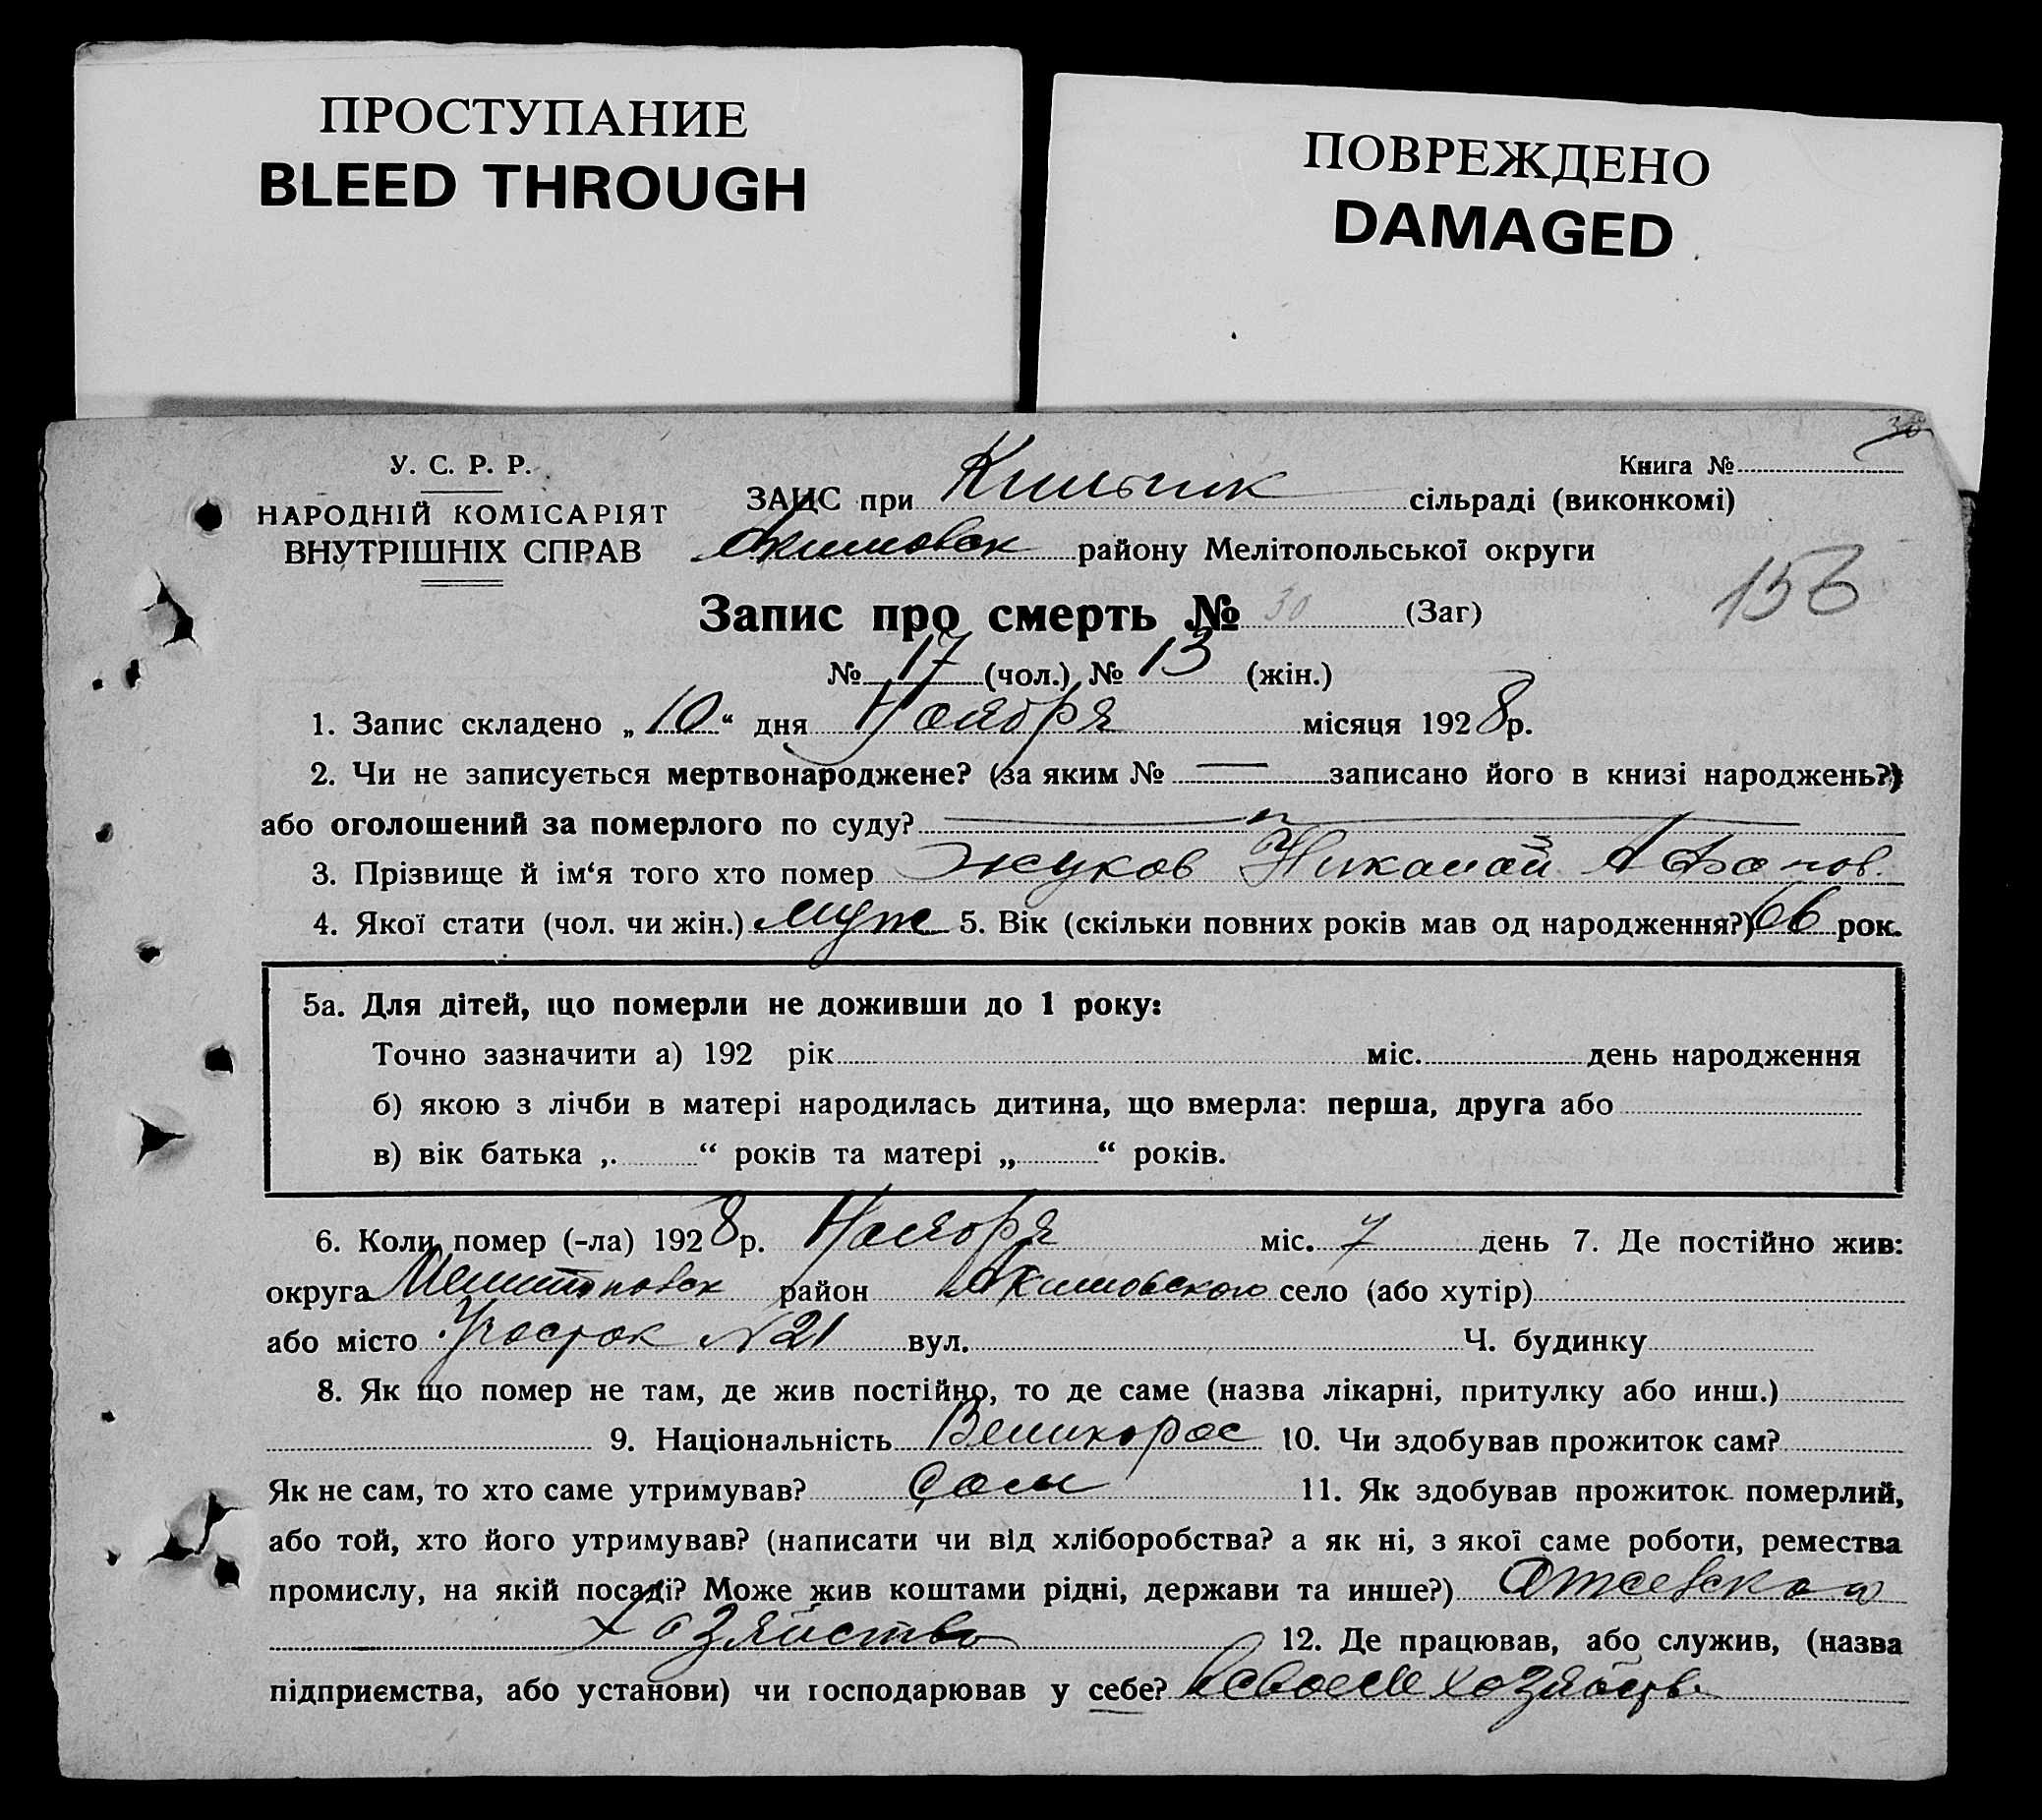 ПРОСТУПАНИЕ
BLEED THROUGH
ПОВРЕЖДЕНО
DAMAGED
30
У. С. Р. Р.
НАРОДНІЙ КОМІСАРІЯТ
ВНУТРІШНІХ СПРАВ
Книга №
ЗАЦС при сільраді (виконкомі)
Акимовск району Мелітопольської округи
156
Запис про смерть № 30 (Заг)
№ 17 (чол.) № 13 (жін.)
1. Запис складено „ 10 “ дня Ноября місяця 1928 р.
2. Чи не записується мертвонароджене? (за яким № — записано його в книзі народжень?)
або оголошений за померлого по суду?
3. Прізвище й ім‘я того хто помер Жуков Николай Афанов.
4. Якої стати (чол. чи жін.) муж 5. Вік (скільки повних років мав од народження?) 66 рок.
5а. Для дітей, що померли не доживши до 1 року:
Точно зазначити а) 192 рік міс. день народження
б) якою з лічби в матері народилась дитина, що вмерла: перша, друга або
в) вік батька „ “ років та матері „ “ років.
6. Коли помер (-ла) 1928 р. Ноября міс. 7 день 7. Де постійно жив:
округа Мелитоповск район Акимовского село (або хутір)
або місто Участок №21 вул. Ч. будинку
8. Як що помер не там, де жив постійно, то де саме (назва лікарні, притулку або инш.)
9. Національність Великорос 10. Чи здобував прожиток сам?
Як не сам, то хто саме утримував? Сам 11. Як здобував прожиток померлий,
або той, хто його утримував? (написати чи від хліборобства? а як ні, з якої саме роботи, ремества
промислу, на якій посаді? Може жив коштами рідні, держави та инше?)
хозяйство 12. Де працював, або служив, (назва
підприємства, або установи) чи господарював у себе? в своем хозяйств.